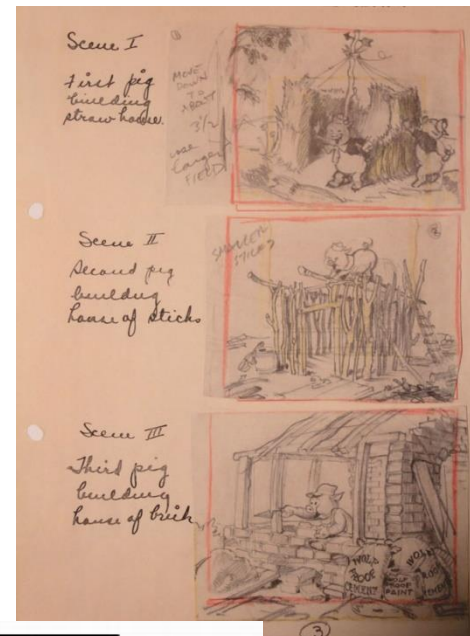 Scene I
First pig
building
straw house.
①
MOVE
DOWN
TO
ABOUT
3 1/2
USE
Larger
FIELD
Scene II
Second pig
building
house of sticks
SMALLER
STICKS
②
Scene III
Third pig
building
house of brick
WOLF
PROOF
CEMENT
WOLF
PROOF
PAINT
WOLF
PROOF
③